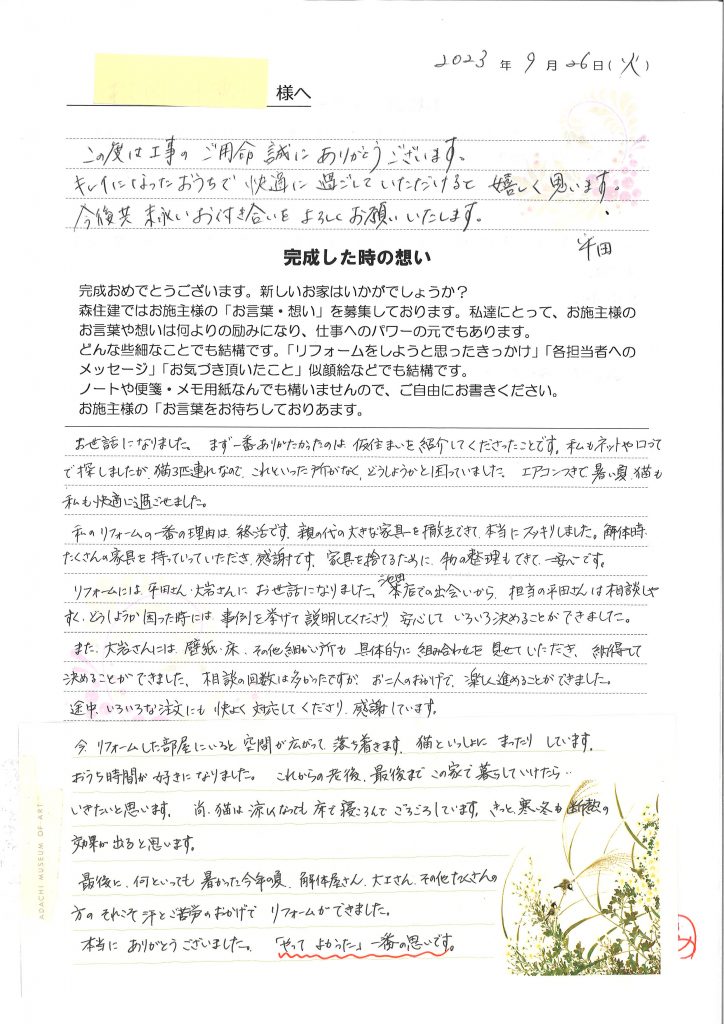 2023 年 9 月 26 日(火)
様へ
この度は工事の ご用命 誠に ありがとうございます。
キレイになったおうちで 快適に 過ごして いただけると 嬉しく思います。
今後共 末永いお付き合いを よろしくお願いいたします。
平田
完成した時の想い
完成おめでとうございます。新しいお家はいかがでしょうか？
森住建ではお施主様の「お言葉・想い」を募集しております。私達にとって、お施主様の
お言葉や想いは何よりの励みになり、仕事へのパワーの元でもあります。
どんな些細なことでも結構です。「リフォームをしようと思ったきっかけ」「各担当者への
メッセージ」「お気づき頂いたこと」似顔絵などでも結構です。
ノートや便箋・メモ用紙なんでも構いませんので、ご自由にお書きください。
お施主様の「お言葉をお待ちしておりあます。
お世話になりました。 まず一番ありがたかったのは 仮住まいを紹介してくださったことです。私もネットや口コミ
で探しましたが、猫3匹連れなので、これといった所がなく、どうしようかと困っていました。 エアコンつきで、暑い夏、猫も
私も快適に過ごせました。
私のリフォームの一番の理由は、終活です。親の代の大きな家具を撤去できて、本当にスッキリしました。解体時、
たくさんの家具を持っていっていただき、感謝です。家具を捨てるために、物の整理もできて、一安心です。
リフォームには、平田さん・大岩さんに お世話になりました。池田本店での出会いから、担当の平田さんは相談しや
すく、どうしようか困った時には 事例を挙げて説明してくださり 安心して いろいろ決めることができました。
また、大岩さんには、壁紙・床・その他細かい所も 具体的に組み合わせを見せていただき、 納得して
決めることができました。 相談の回数は多かったですが、お二人のおかげで、楽しく進めることができました。
途中、いろいろな注文にも 快よく対応してくださり、感謝しています。
今、リフォームした部屋にいると 空間が広がって 落ち着きます。 猫といっしょに まったり しています。
おうち時間が 好きになりました。 これからの老後、最後まで この家で暮らしていけたら‥
いきたいと思います。 尚、猫は涼しくなっても 床で寝ころんで ごろごろしています。きっと、寒い冬も 断熱の
効果が出ると思います。
最後に、何といっても 暑かった今年の夏、解体屋さん、大工さん、その他たくさんの
方の それこそ汗と ご苦労のおかげで リフォームができました。
本当に ありがとうございました。 「やって よかった」 一番の思いです。
ADACHI MUSEUM OF ART